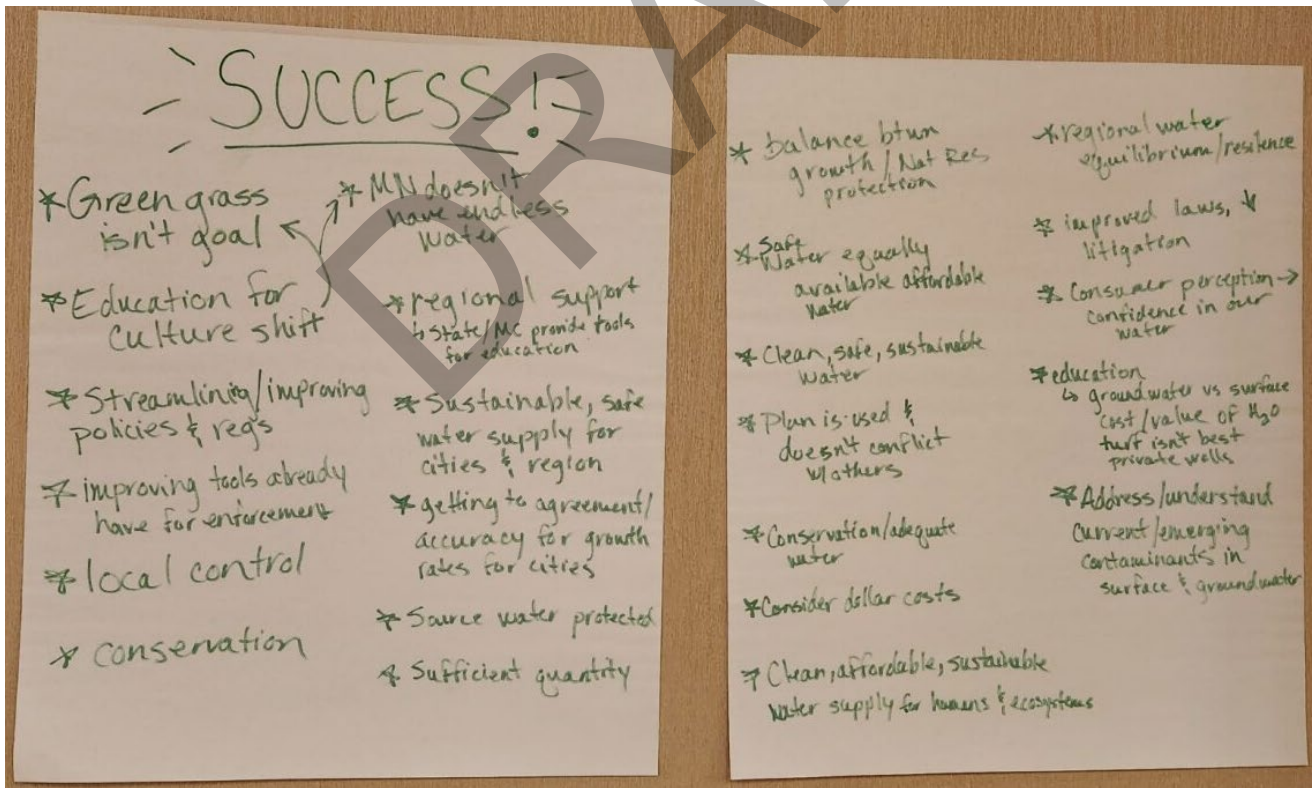 SUCCESS!
*Green grass
isn't goal
*Education for
culture shift
*Streamlining/improving
policies & regs
*improving tools already
have for enforcement
*local control
*conservation
*MN doesn't
have endless
water
*regional support
↳ State/MC provide tools
for education
*Sustainable, safe
water supply for
cities & region
*getting to agreement/
accuracy for growth
rates for cities
*Source water protected
*Sufficient quantity
*balance btwn
growth/Nat Res
protection
*Safe
Water equally
available affordable
water
*Clean, safe, sustainable
water
*Plan is used &
doesn't conflict
w/others
*Conservation/adequate
water
*Consider dollar costs
*Clean, affordable, sustainable
water supply for humans & ecosystems
*regional water
equilibrium/resilence
*improved laws, ↓
litigation
*Consumer perception →
confidence in our
water
*education
↳ groundwater vs surface
cost/value of H2O
turf isn't best
private wells
*Address/understand
current/emerging
contaminants in
surface & groundwater
DRA